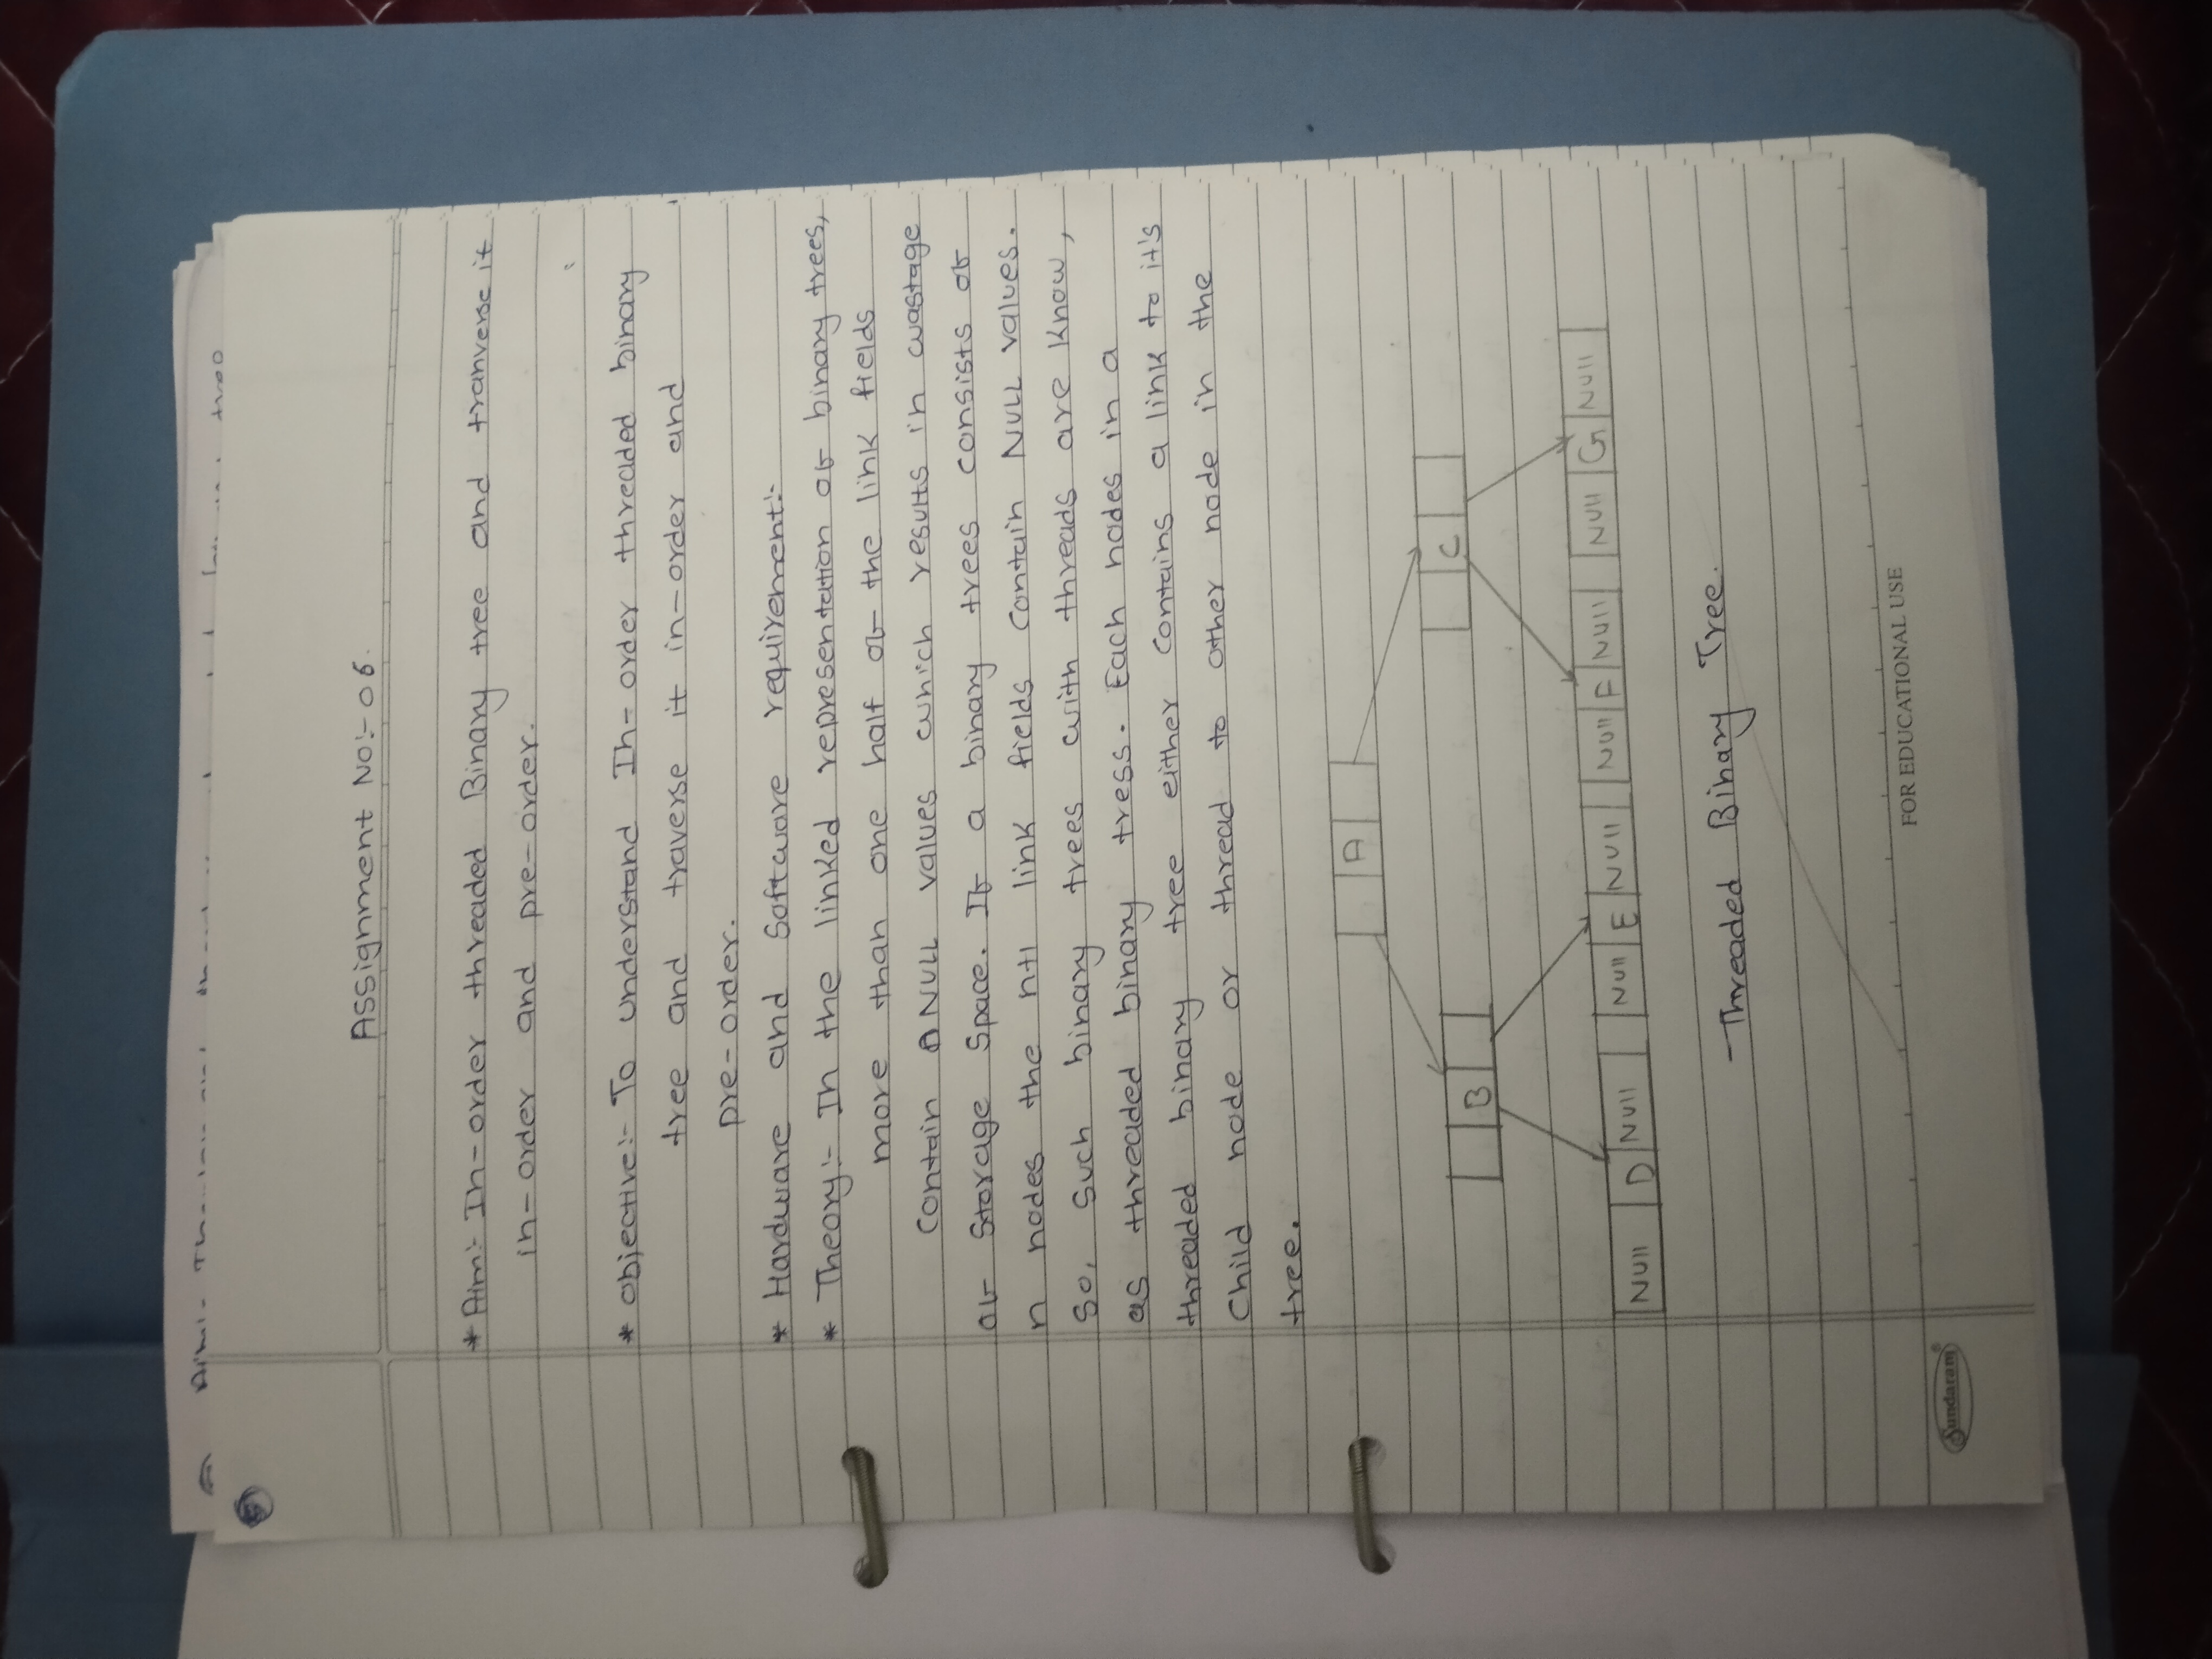 Assignment No:- 06.
* Aim:- In-order threaded Binary tree and tranverse it
in-order and pre-order.
* objective:- To understand In-order threaded binary
tree and traverse it in-order and
pre-order.
* Hardware and Software requirement:-
* Theory:- In the linked representation of binary trees,
more than one half of the link fields
contain NULL values which results in wastage
of Storage Space. If a binary trees consists of
n nodes the n+1 link fields contain NULL values.
So, such binary trees with threads are know,
as threaded binary tress. Each nodes in a
threaded binary tree either contains a link to it's
child node or thread to other node in the
tree.
A
B C
Null D Null Null E Null Null F Null Null G Null
- Threaded Binary Tree.
FOR EDUCATIONAL USE
Sundaram